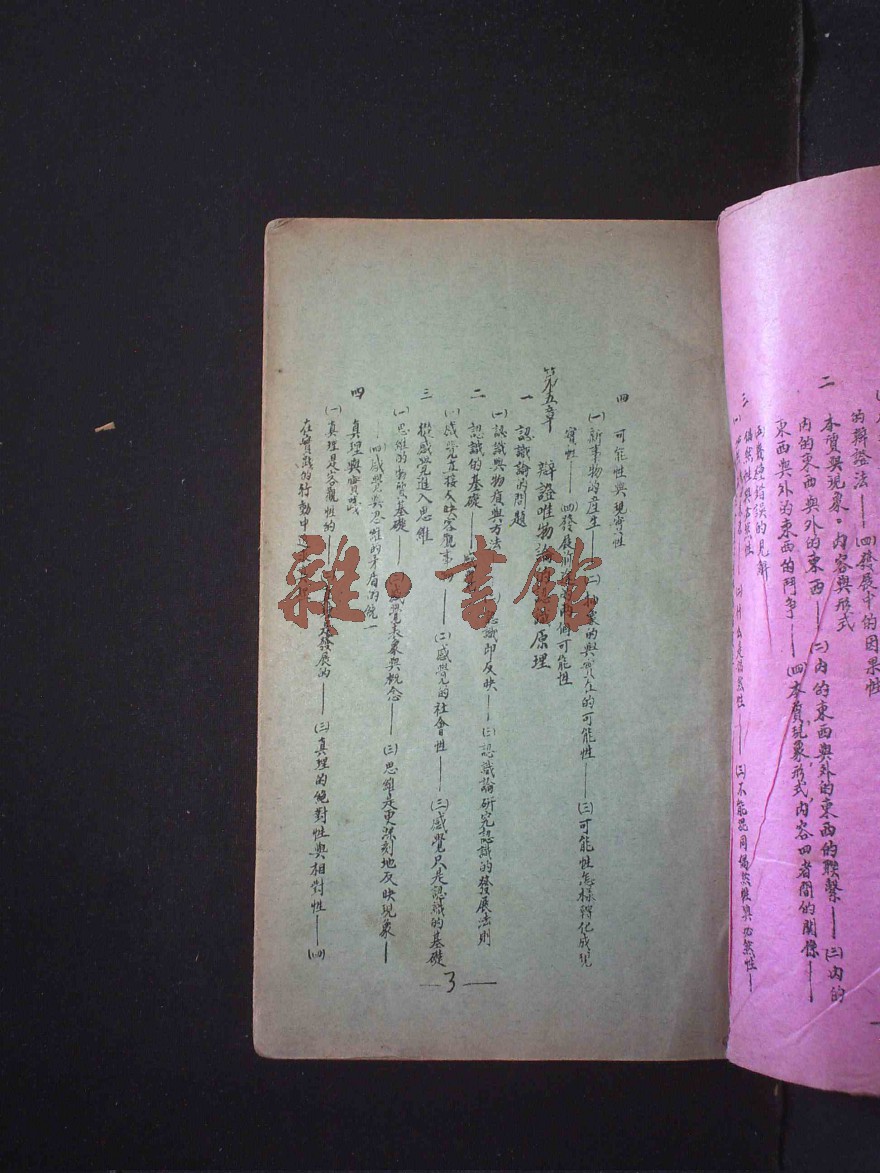 的辯證法——(四)發展中的因果性
二　本質與現象·內容與形式
內的東西與外的東西——(二)內的東西與外的東西的聯繫——(三)內的
東西與外的東西的鬥爭——(四)本質,現象,形式,內容四者間的關係——
三　偶然性與必然性
兩種錯誤的見解
什么是偶然性——(三)不能混同偶然性與必然性——
四　可能性與現實性
(一)新事物的產生——(二)抽象的與實在的可能性——(三)可能性怎樣轉化成現
實性——(四)發展前途的兩個可能性
第五章　辯證唯物論的　原理
一　認識論的問題
(一)認識與物質與方法　認識即反映——(三)認識論研究認識的發展法則
二　認識的基礎
(一)感覺直接反映客觀事——(二)感覺的社會性——(三)感覺只是認識的基礎
三　從感覺進入思維
(一)思維的物質基礎——(二)感覺表象與概念——(三)思維是更深刻地反映現象——
——(四)感覺與思維的矛盾的統一
四　真理與實踐
(一)真理是客觀性的——　是發展的——(三)真理的絕對性與相對性——(四)
在實踐的行動中
—3—
雜·書館